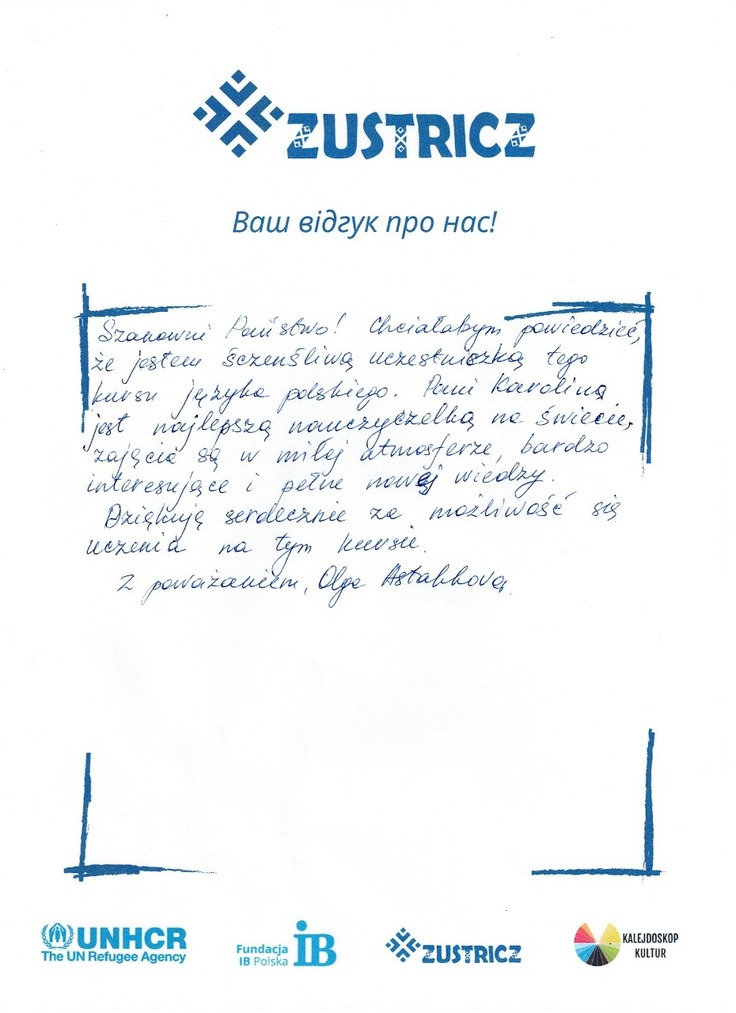 ZUSTRICZ
Ваш відгук про нас!
Szanowni Państwo! Chciałabym powiedzieć,
że jestem sczenśliwą uczestniszką tego
kursu języka polskiego. Pani Karolina
jest najlepszą nauczyczelką na świecie,
zajęcia są w miłej atmosferze, bardzo
interesujące i pełne nowej wiedzy.
Dziękuję serdecznie za możliwość się
uczenia na tym kursie.
Z poważaniem, Olga Astakhova
UNHCR
The UN Refugee Agency
Fundacja
IB Polska
iB
ZUSTRICZ
KALEJDOSKOP
KULTUR